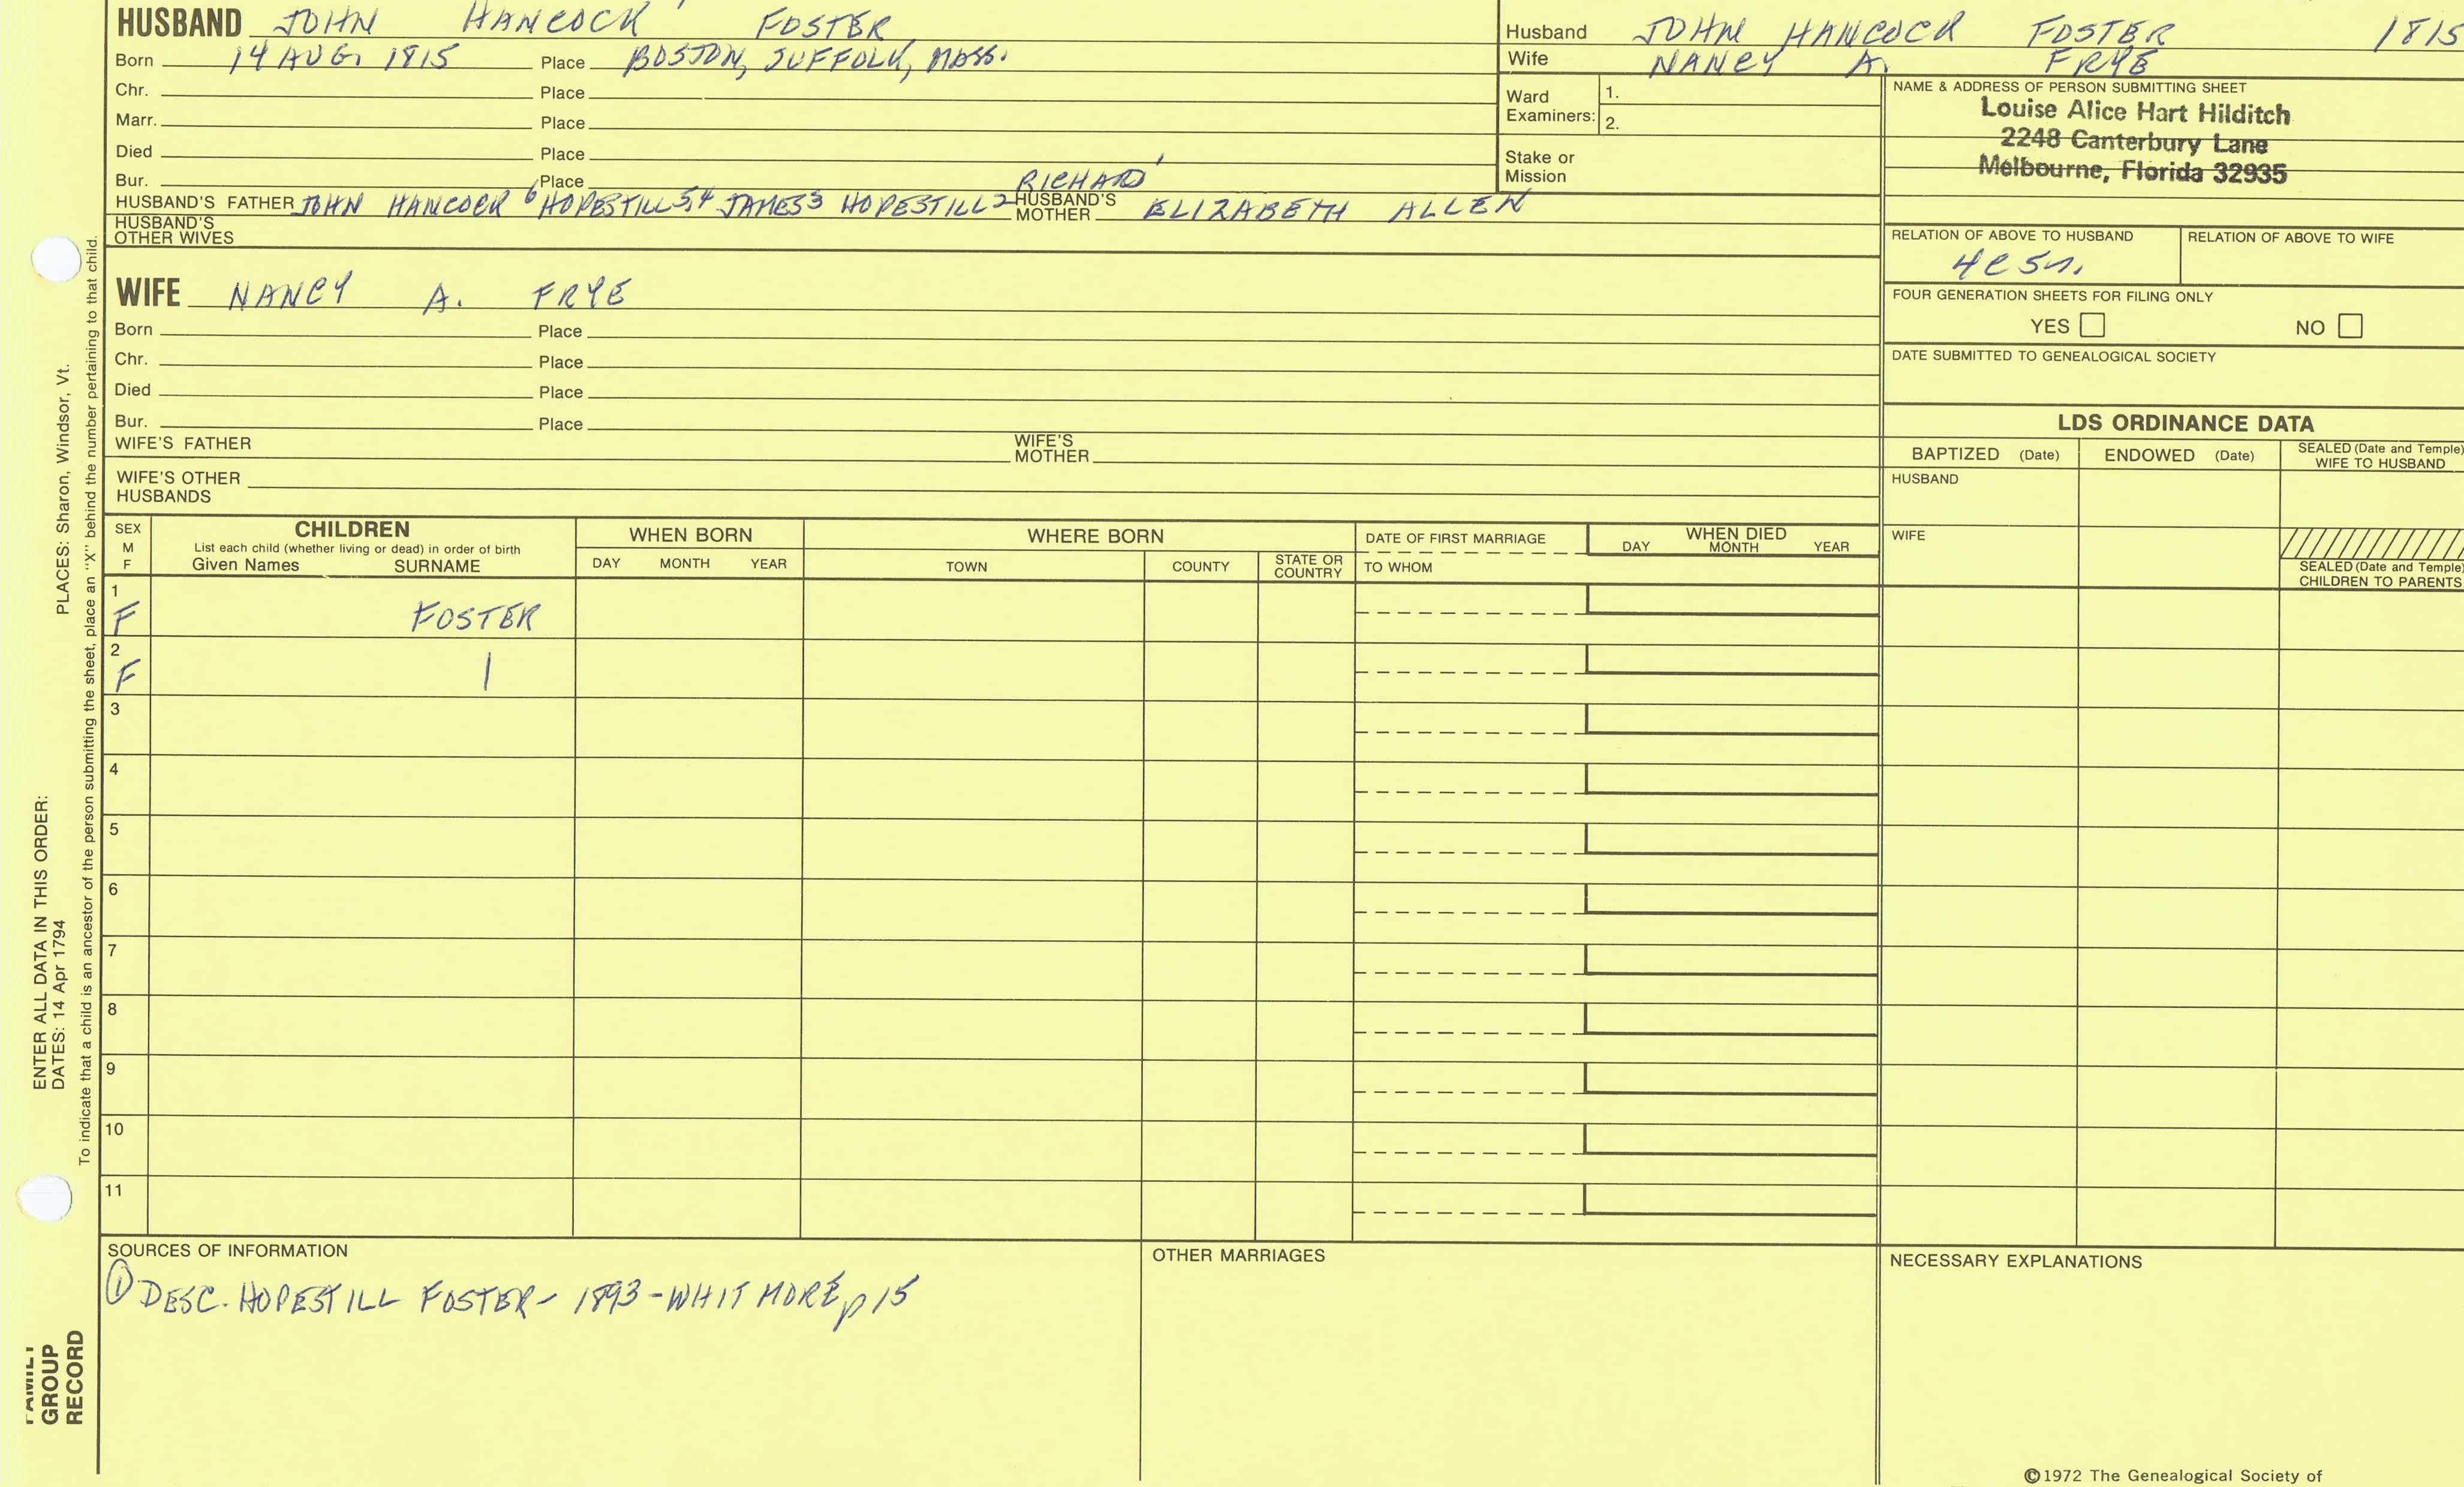 HUSBAND JOHN HANCOCK FOSTER
Born 14 AUG. 1815 Place BOSTON, SUFFOLK, MASS.
Chr. Place
Marr. Place
Died Place
Bur. Place
HUSBAND'S FATHER JOHN HANCOCK 6 HOPESTILL 5,4 JAMES 3 HOPESTILL 2 RICHARD 1 HUSBAND'S MOTHER ELIZABETH ALLEN
HUSBAND'S OTHER WIVES
WIFE NANCY A. FRYE
Born Place
Chr. Place
Died Place
Bur. Place
WIFE'S FATHER WIFE'S MOTHER
WIFE'S OTHER HUSBANDS
Husband JOHN HANCOCK FOSTER 1815
Wife NANCY A. FRYE
Ward Examiners: 1.
2.
Stake or Mission
NAME & ADDRESS OF PERSON SUBMITTING SHEET
Louise Alice Hart Hilditch
2248 Canterbury Lane
Melbourne, Florida 32935
RELATION OF ABOVE TO HUSBAND RELATION OF ABOVE TO WIFE
FOUR GENERATION SHEETS FOR FILING ONLY
YES NO
DATE SUBMITTED TO GENEALOGICAL SOCIETY
LDS ORDINANCE DATA
BAPTIZED (Date) ENDOWED (Date) SEALED (Date and Temple) WIFE TO HUSBAND
HUSBAND
WIFE
SEALED (Date and Temple) CHILDREN TO PARENTS
SEX M F
CHILDREN
List each child (whether living or dead) in order of birth
Given Names SURNAME
WHEN BORN
DAY MONTH YEAR
WHERE BORN
TOWN COUNTY STATE OR COUNTRY
DATE OF FIRST MARRIAGE
TO WHOM
WHEN DIED
DAY MONTH YEAR
1 F FOSTER
2 F |
3
4
5
6
7
8
9
10
11
SOURCES OF INFORMATION
① DESC. HOPESTILL FOSTER - 1893 - WHITMORE p 15
OTHER MARRIAGES
NECESSARY EXPLANATIONS
©1972 The Genealogical Society of
PLACES: Sharon, Windsor, Vt.
ENTER ALL DATA IN THIS ORDER:
DATES: 14 Apr 1794
To indicate that a child is an ancestor of the person submitting the sheet, place an "X" behind the number pertaining to that child.
FAMILY
GROUP
RECORD